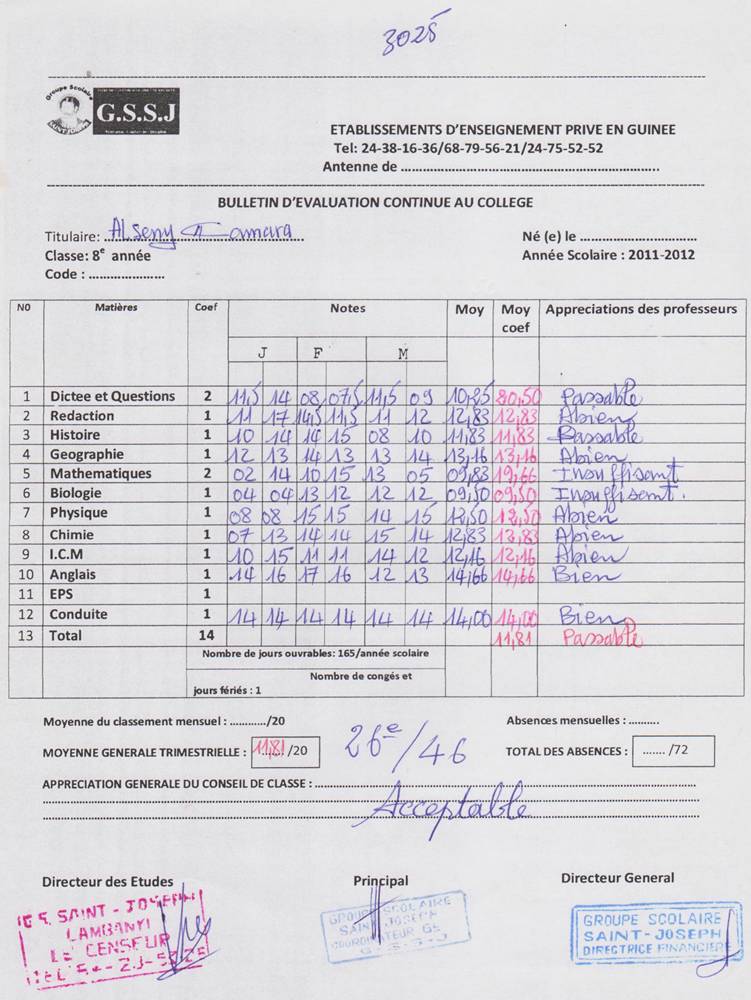 3025
Groupe Scolaire
SAINT-JOSEPH
G.S.S.J
ETABLISSEMENTS D'ENSEIGNEMENT PRIVE EN GUINEE
Tel: 24-38-16-36/68-79-56-21/24-75-52-52
Antenne de ...
BULLETIN D'EVALUATION CONTINUE AU COLLEGE
Titulaire: Alseny Camara Né (e) le ...
Classe: 8e année Année Scolaire : 2011-2012
Code : ...
N0 Matières Coef Notes Moy Moy coef Appreciations des professeurs
J F M
1 Dictee et Questions 2 11,5 14 08 07,5 11,5 09 10,25 20,50 Passable
2 Redaction 1 11 17 14,5 11,5 11 12 12,83 12,83 Abien
3 Histoire 1 10 14 14 15 08 10 11,83 11,83 Passable
4 Geographie 1 12 13 14 13 13 14 13,16 13,16 Abien
5 Mathematiques 2 02 14 10 15 13 05 09,83 19,66 Insuffisant
6 Biologie 1 04 04 13 12 12 12 09,50 09,50 Insuffisant.
7 Physique 1 08 08 15 15 14 15 12,50 12,50 Abien
8 Chimie 1 07 13 14 14 15 14 12,83 12,83 Abien
9 I.C.M 1 10 15 11 11 14 12 12,16 12,16 Abien
10 Anglais 1 14 16 17 16 12 13 14,66 14,66 Bien
11 EPS 1
12 Conduite 1 14 14 14 14 14 14 14,00 14,00 Bien
13 Total 14 11,81 Passable
Nombre de jours ouvrables: 165/année scolaire
Nombre de congés et
jours fériés : 1
Moyenne du classement mensuel : ............/20 Absences mensuelles : ..........
MOYENNE GENERALE TRIMESTRIELLE : 11,81 /20 26e/46 TOTAL DES ABSENCES : ....... /72
APPRECIATION GENERALE DU CONSEIL DE CLASSE : ...
Acceptable
Directeur des Etudes Principal Directeur General
G.S. SAINT - JOSEPH
LAMBANYI
LE CENSEUR
GROUPE SCOLAIRE
SAINT JOSEPH
COORDINATEUR GS
G-S-S-J
GROUPE SCOLAIRE
SAINT-JOSEPH
DIRECTRICE FINANCIERE